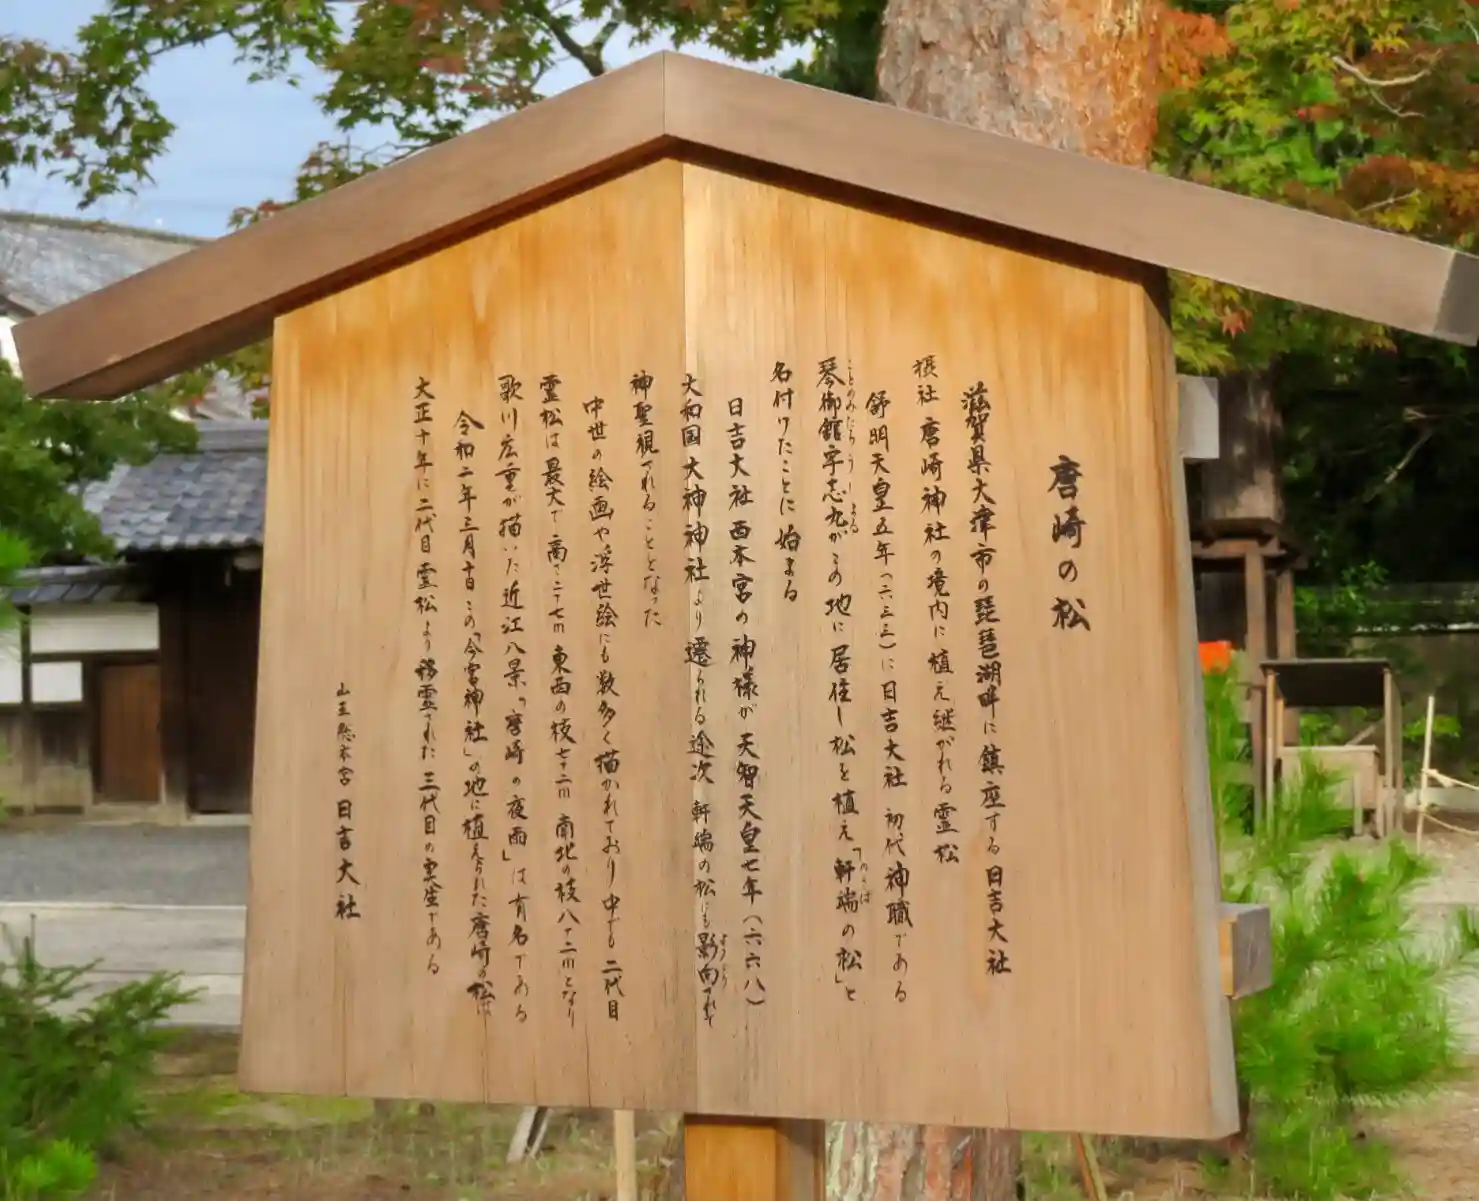 唐崎の松
滋賀県大津市の琵琶湖畔に鎮座する日吉大社
摂社 唐崎神社の境内に植え継がれる霊松
舒明天皇五年(六三三)に日吉大社 初代神職である
琴御館宇志丸がこの地に居住し松を植え「軒端の松」と
ことのみたち うしまる
のきば
名付けたことに始まる
日吉大社西本宮の神様が天智天皇七年(六六八)
大和国大神神社より遷られる途次 軒端の松にも影向されて
ようごう
神聖視されることとなった
中世の絵画や浮世絵にも数多く描かれており中でも二代目
霊松は最大で高さ二十七m 東西の枝七十二m 南北の枝八十二mとなり
歌川広重が描いた近江八景「唐崎の夜雨」は有名である
令和二年三月十日この「今宮神社」の地に植えられた唐崎の松は
大正十年に二代目霊松より移霊された三代目の実生である
山王総本宮 日吉大社